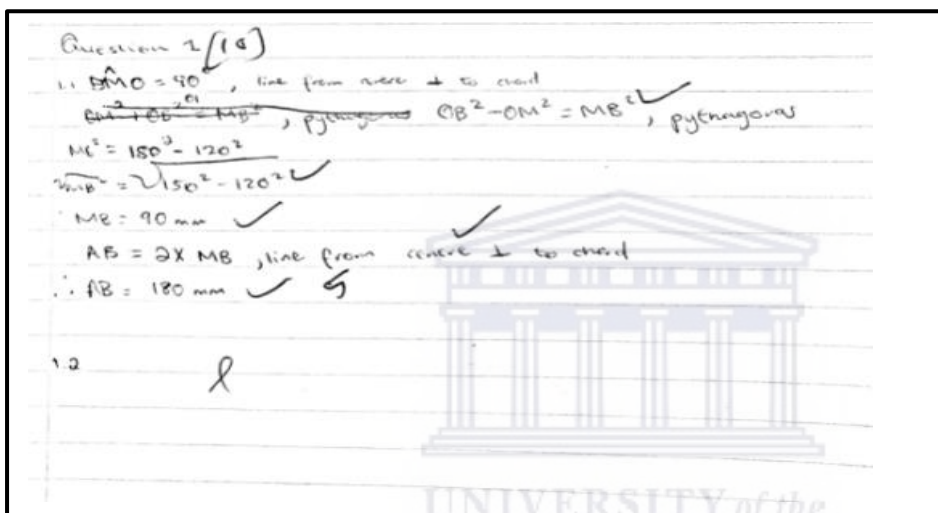 Question 1 [10]
1.1 BM̂O = 90°, line from centre ⊥ to chord
BM² + OB² = MB², pythagoras OB² - OM² = MB², pythagoras
MB² = 150² - 120²
√MB² = √150² - 120²
∴ MB = 90 mm
AB = 2 x MB, line from centre ⊥ to chord
∴ AB = 180 mm 5
1.2
UNIVERSITY of the